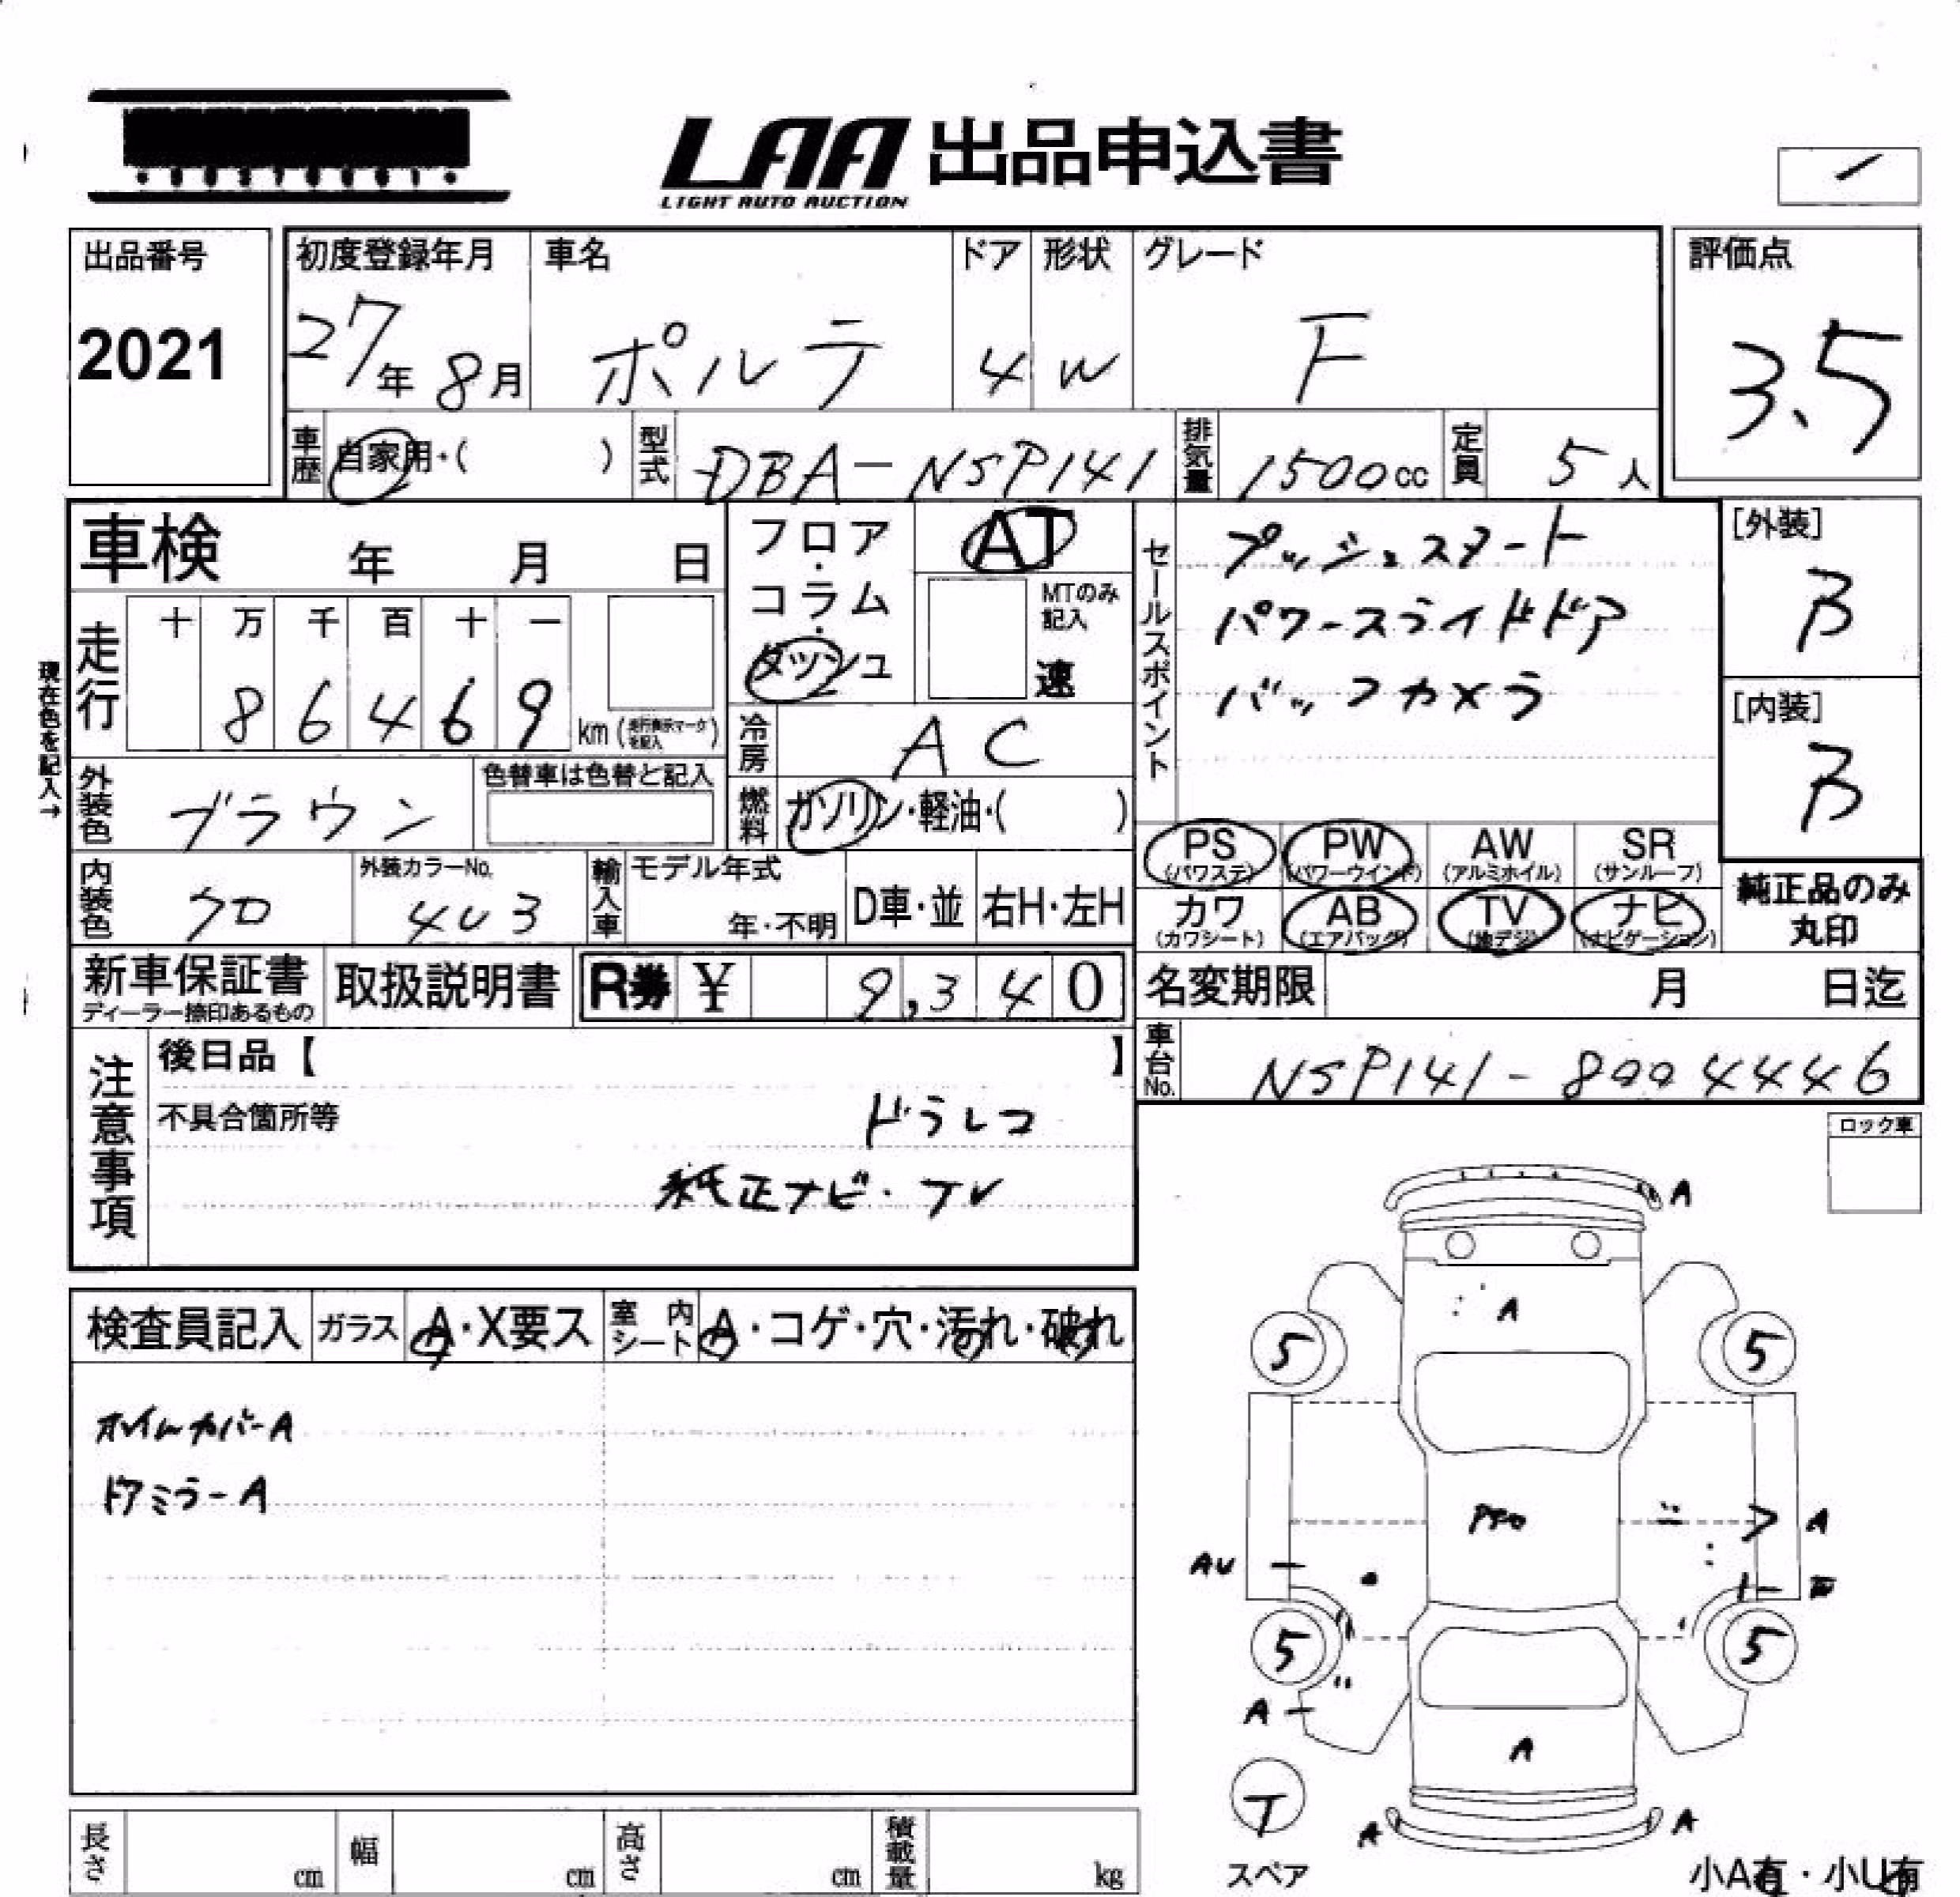 LAA 出品申込書
LIGHT AUTO AUCTION
出品番号
2021
初度登録年月
27年 8月
車名
ポルテ
ドア
4
形状
W
グレード
F
評価点
3.5
車歴
自家用・( )
型式
DBA-NSP141
排気量
1500cc
定員
5人
車検 年 月 日
フロア・コラム・ダッシュ
AT
MTのみ記入
速
セールスポイント
プッシュスタート
パワースライドドア
バックカメラ
[外装]
B
[内装]
B
現在色を記入→
走行
十 万 千 百 十 一
8 6 4 6 9 km
冷房
AC
外装色
ブラウン
色替車は色替と記入
燃料
ガソリン・軽油・( )
PS (パワステ)
PW (パワーウインド)
AW (アルミホイル)
SR (サンルーフ)
カワ (カワシート)
AB (エアバッグ)
TV (地デジ)
ナビ (ナビゲーション)
純正品のみ丸印
内装色
クロ
外装カラーNo.
4U3
輸入車
モデル年式
年・不明
D車・並
右H・左H
新車保証書
ディーラー捺印あるもの
取扱説明書
R券 ¥ 9,340
名変期限 月 日迄
車台No.
NSP141-8004446
注意事項
後日品【 】
不具合箇所等
ドラレコ
純正ナビ・TV
ロック車
検査員記入
ガラス
A・X要ス
室内シート
A・コゲ・穴・汚れ・破れ
ホイルカバーA
ドアミラーA
A
A
5
5
A
AU
5
5
A
A
T
スペア
A
A
小A有・小U有
長さ cm
幅 cm
高さ cm
積載量 kg